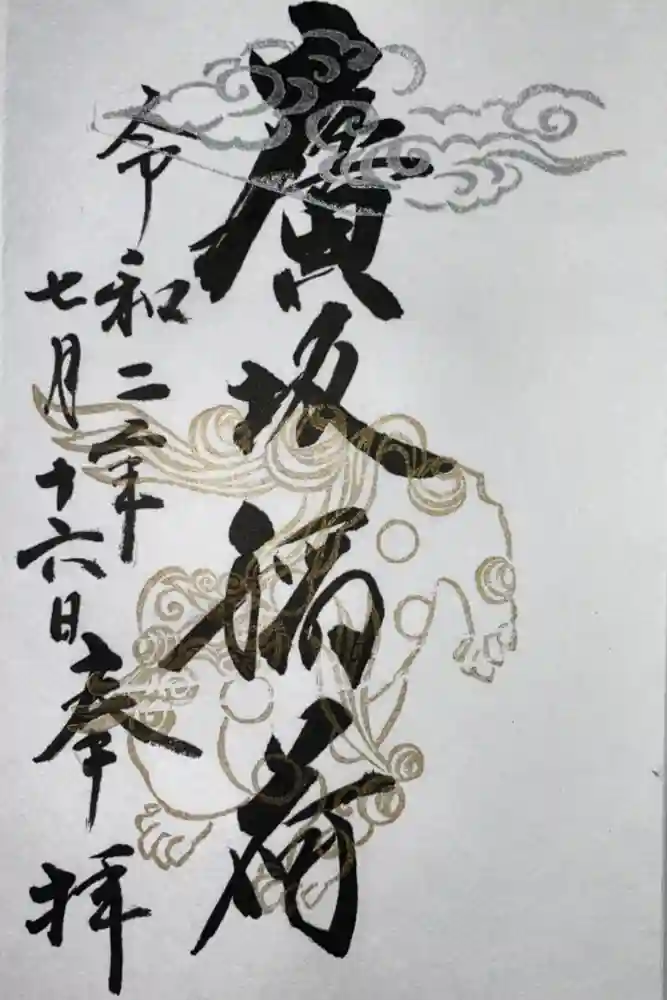 廣坂稲荷
令和二年
七月十六日奉拝